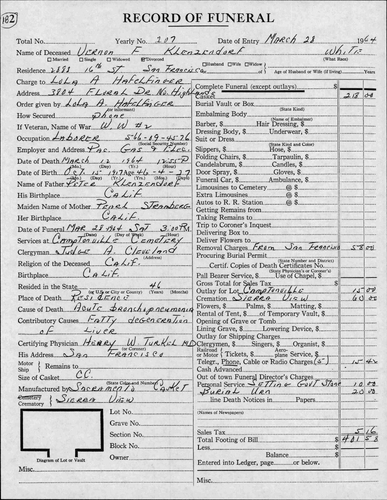 182
RECORD OF FUNERAL
Total No. Yearly No. 207 Date of Entry March 28 1964
Name of Deceased Vernon F Klenzendorf White
Married Single Widowed Divorced (What Race)
Residence 2888 16th St San Francisco Husband Wife Widow Age of Husband or Wife (if living)
Charge to Lola A Hatchfinger Complete Funeral (except outlays) $
Address 3804 Floral Dr No. Highlands 218 00
Order given by Lola A. Hatchfinger Burial Vault or Box
How Secured Phone Embalming Body
If Veteran, Name of War W W #2 Barber, $ Hair Dressing, $
Occupation Laborer 566-09-4576 Dressing Body, $ Underwear, $
(Social Security Number) Suit or Dress
Employer and Address Pac. Gas & Elec. Slippers, $ Hose, $
Date of Death March 12 1964 12:55P Folding Chairs, $ Tarpaulin, $
Date of Birth Oct. 15 1917 Age 46-4-27 Candelabrum, $ Candles, $
Name of Father Peter Klenzendorf Door Spray, $ Gloves, $
His Birthplace Calif Funeral Car, $ Ambulance, $
Maiden Name of Mother Pearl Stramberg Limousines to Cemetery @ $
Her Birthplace Calif. Extra Limousines @ $
Autos to R. R. Station @ $
Date of Funeral Mar 28 1964 Sat 3:00PM Getting Remains from
Services at Camptonville Cemetery Taking Remains to
Clergyman Judge A Cleveland Trip to Coroner's Inquest
Religion of the Deceased Calif. Delivering Box to
Birthplace Calif. Deliver Flowers to
Resided in the State 46 Removal Charges From San Francisco 58 00
Place of Death Residence Procuring Burial Permit
Cause of Death Acute Bronchipneumonia Certif. Copies of Death Certificates No.
Contributory Causes Fatty degeneration Pall Bearer Service, $ Use of Chapel, $
of Liver Gross Total for Sales Tax $
Certifying Physician Henry W Turkel MD Outlay for Lot Camptonville 15 00
His Address San Francisco Cremation Sierra View 60 00
Motor Ship Flowers, $ Palms, $ Matting, $
Size of Casket CC Rental of Tent, $ of Temporary Vault, $
Manufactured by Sacramento Casket Opening of Grave or Tomb
Cemetery Lining Grave, $ Lowering Device, $
Crematory Sierra View Outlay for Shipping Charges
Clergymen, $ Singers, $ Organist, $
Tickets, $
Telegr., Phone, Cable or Radio Charges 15 42
Cash Advanced
Out of town Funeral Director's Charges
Personal Service Setting Govt Stone 10 00
Burial Urn 20 00
line Death Notices in Papers
(Names of Newspapers)
Lot No.
Grave No.
Section No.
Block No.
Owner
Diagram of Lot or Vault
Sales Tax 5 16
Total Footing of Bill $ 401 58
Less
Balance $
Entered into Ledger, page or below.
Misc. Misc.